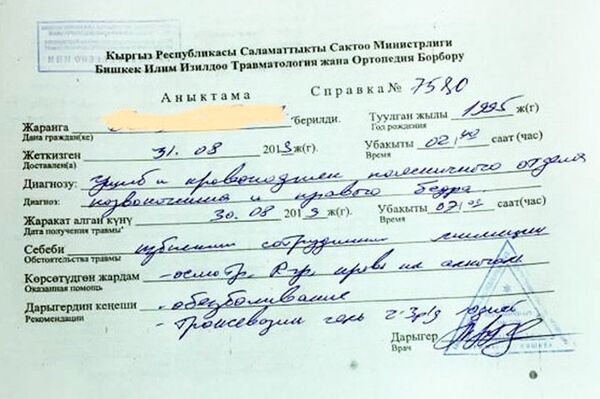 Кыргыз Республикасы Саламаттыкты Сактоо Министрлиги
Бишкек Илим Изилдоо Травматология жана Ортопедия Борбору
Аныктама Справка № 7580
Жаранга берилди. Туулган жылы 1995 ж(г)
Дана граждан(ке) Год рождения
Жеткизген 31.08 2013 ж(г). Убакыты 02 00 саат (час)
Доставлен(а) Время
Диагнозу: Ушиб и кровоподтек поясничного отдела
Диагноз: позвоночника и правого бедра.
Жаракат алган күнү 30.08 2013 ж(г). Убакыты саат (час)
Дата получения травмы Время
Себеби избиение сотрудниками милиции
Обстоятельства травмы
Көрсөтүдгөн жардам - осмотр, крови на алкоголь
Оказанная помощь
Дарыгердин кеңеши - обезболивание
Рекомендации - Троксевазин гель 2-3р/д дней
Дарыгер
Врач
БИШКЕК